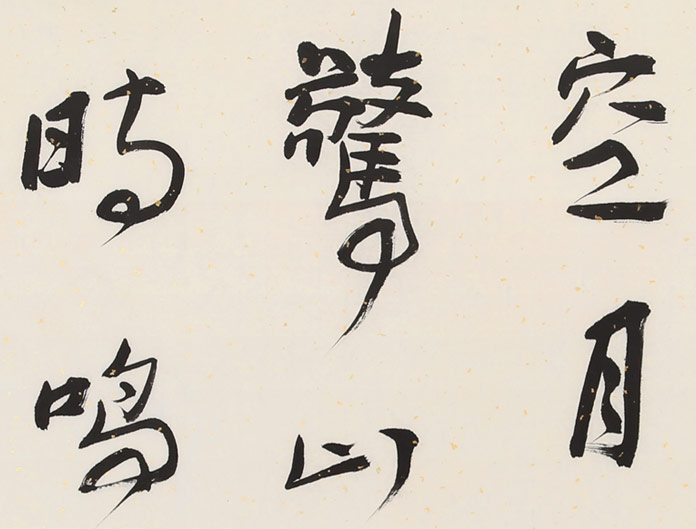 空月
驚山
時鳴